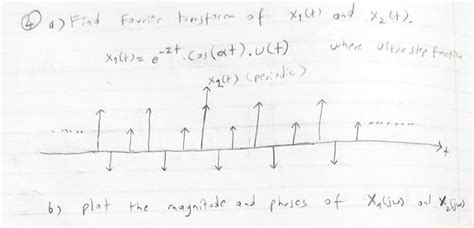 ④ a) Find Fourier transform of x₁(t) and x₂(t).
x₁(t) = e^-2t . cos(αt) . u(t) where u(t) = step function
x₂(t) (periodic)
......
........
t
b) plot the magnitude and phases of X₁(jω) and X₂(jω)